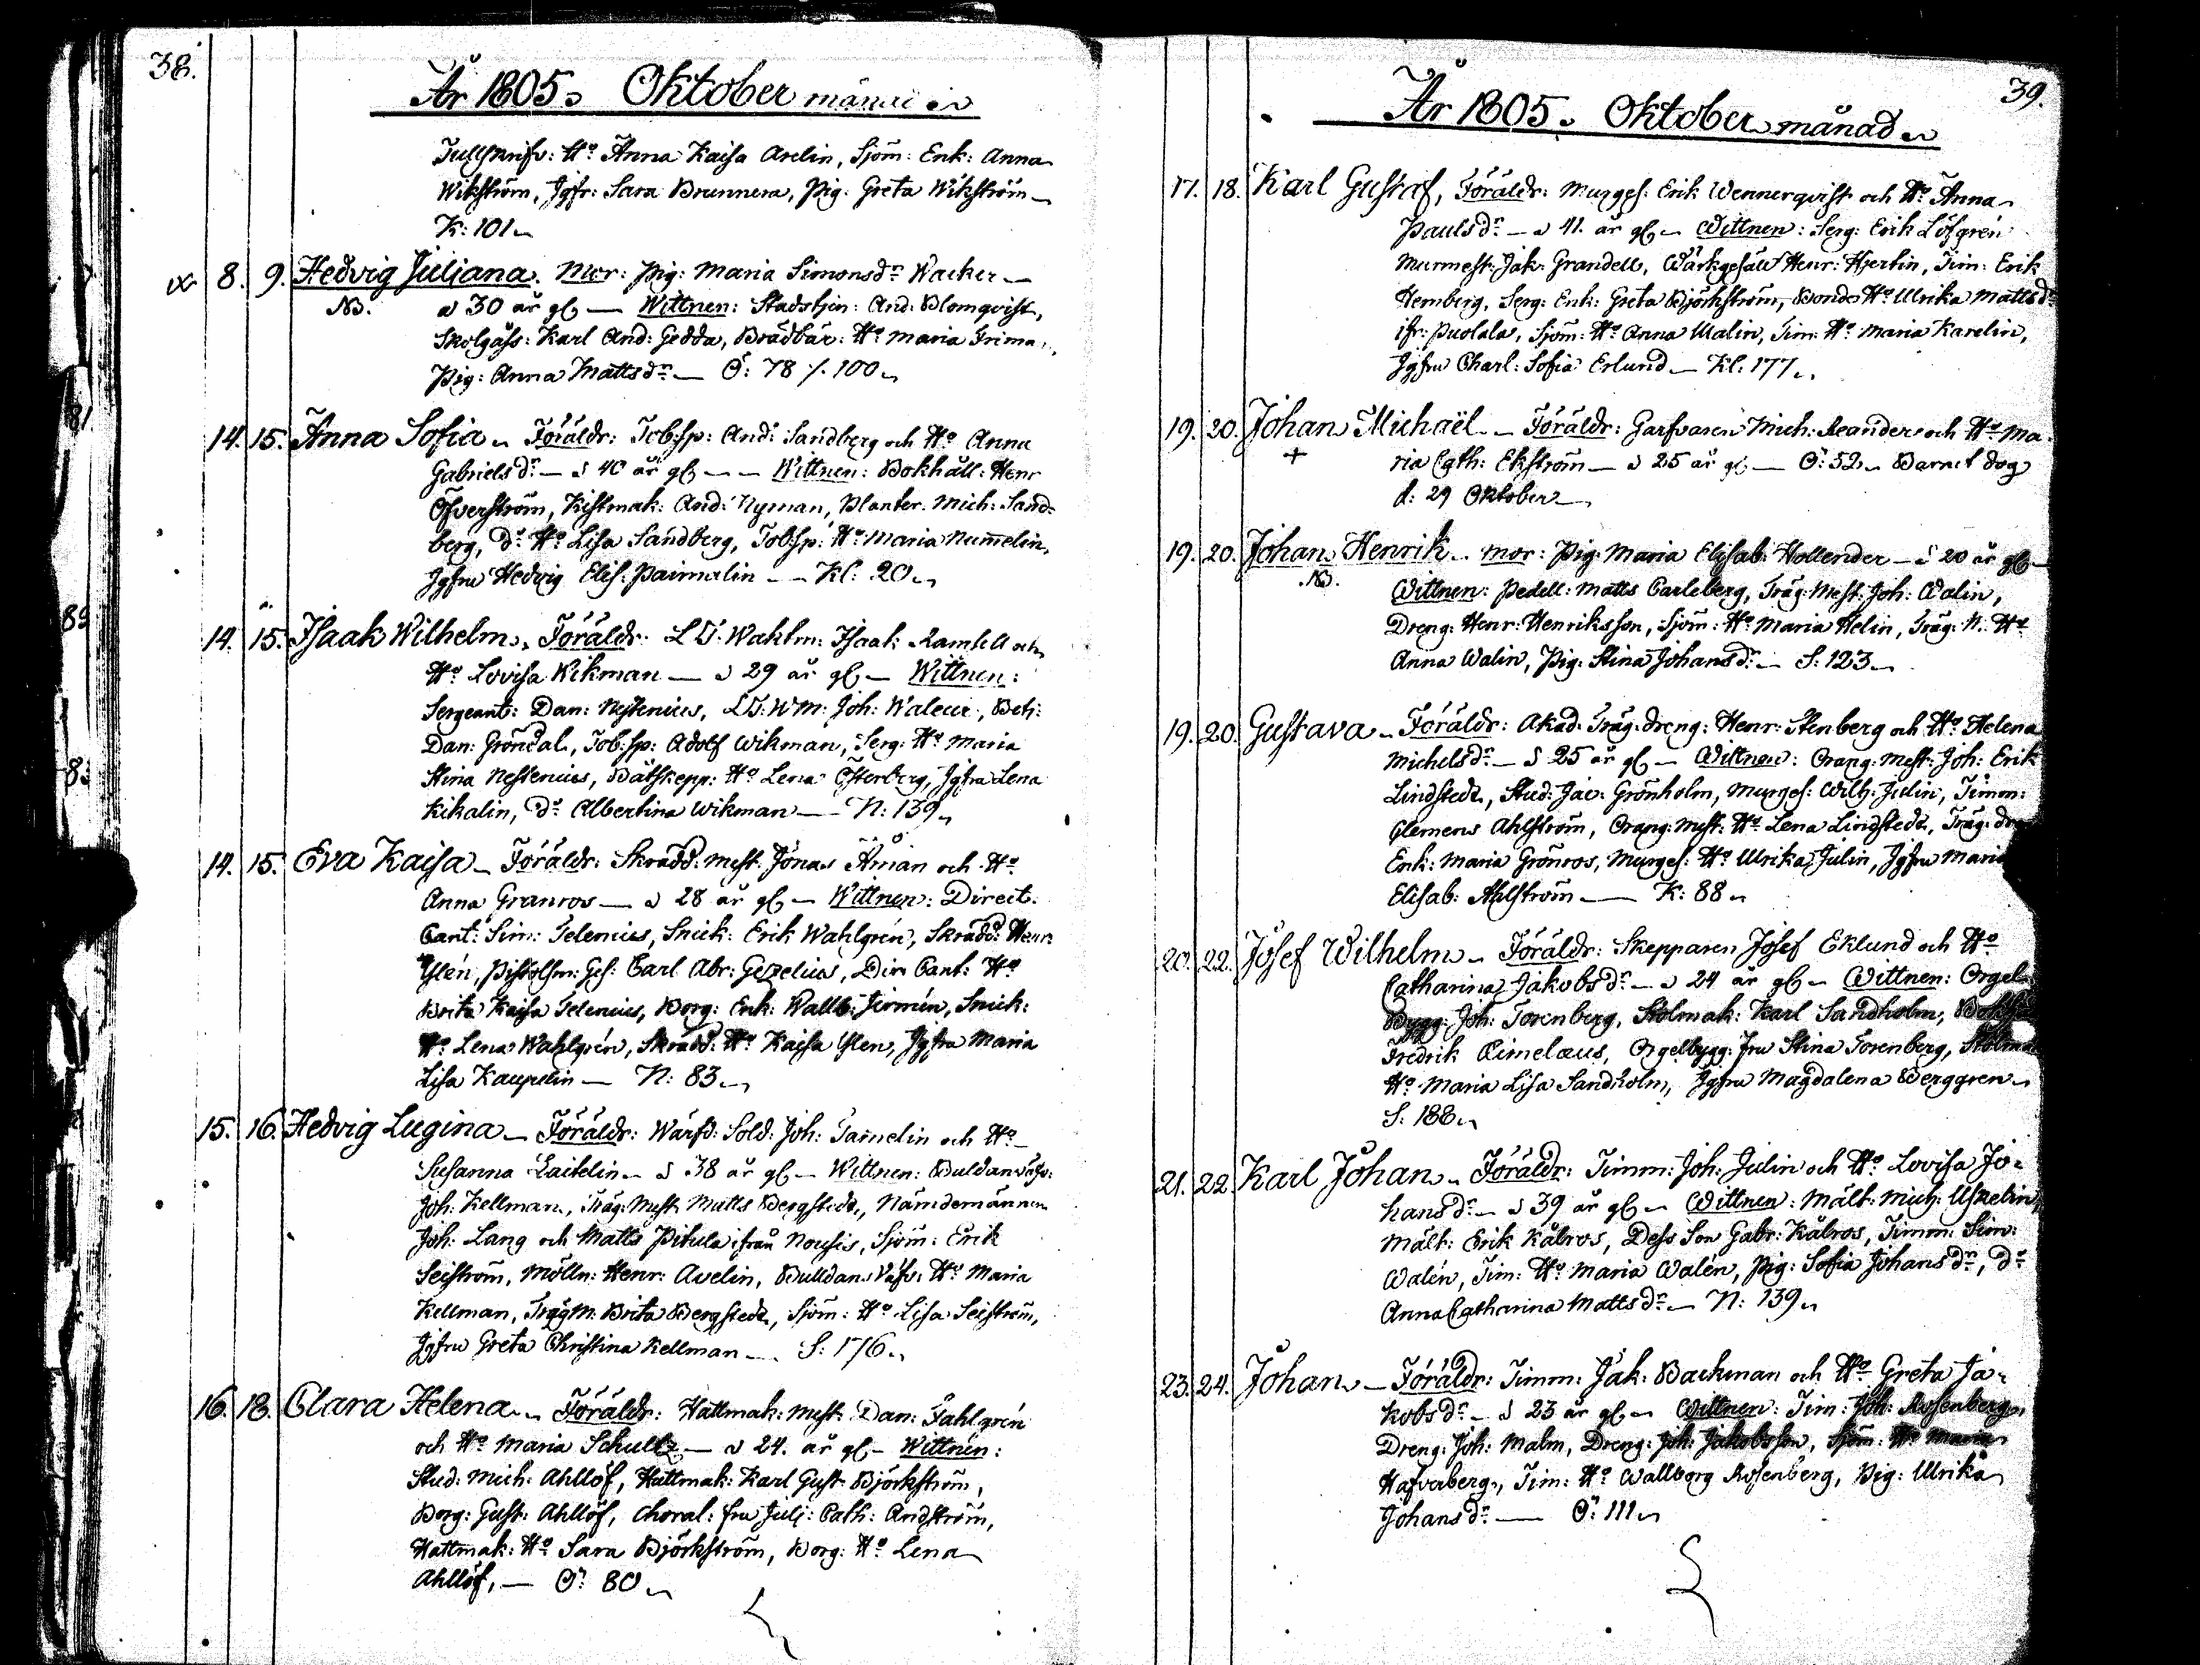 38.
År 1805. Oktober månad
Tullskrifv: Ho Anna Kaisa Arelin, Sjöm: Enk: Anna
Wikström, Jgfr: Sara Brunnera, Pig: Greta Wikström
K: 101
8. 9. Hedvig Juliana. Mor: Pig: Maria Simonsdr Wacker —
NB. a 30 år gl — Wittnen: Stadstjen: And: Blomqvist,
Skolgåss: Karl And: Gedda, Brädbär: Ho Maria
Pig: Anna Mattsdr — Ö: 78 /. 100
14. 15. Anna Sofia. Föräldr: Tob:sp: And: Sandberg och Ho Anna
Gabrielsdr — a 40 år gl — Wittnen: Bokhåll: Henr
Öfverström, Kistmak: And: Nyman, Planter. Mich: Sand-
berg, do Ho Lisa Sandberg, Tob:sp: Ho Maria Num̄elin,
Jgfru Hedvig Elis: Paimalin — Kl: 20
14. 15. Isaak Wilhelm. Föräldr: LT: Wahtm: Isaak Ramsell och
Ho Lovisa Wikman — a 29 år gl — Wittnen:
Sergeant: Dan: Nestenius, LT: WM: Joh: Waleur, Betj:
Dan: Gröndal, Tob:sp: Adolf Wikman, Serg: Ho Maria
Stina Nestenius, Båtskepp: Ho Lena Österberg, Jgfru Lena
Kikalin, do Albertina Wikman — N: 139
14. 15. Eva Kaisa — Föräldr: Skrädd: mest: Jonas Åman och Ho
Anna Granros — a 28 år gl — Wittnen: Direct:
Cant: Sim: Telenius, Snick: Erik Wahlgrén, Skrädd: Henr:
Ylén, Pistolsm: Ges: Carl Abr: Gezelius, Dir: Cant: Ho
Brita Kaisa Telenius, Borg: Enk: Wallb: Jermén, Snick:
Ho Lena Wahlgrén, Skrädd: Ho Kaisa Ylen, Jgfru Maria
Lisa Kaupelin — N: 83
15. 16. Hedvig Lugina — Föräldr: Wärfd: Sold: Joh: Tam̄elin och Ho
Susanna Laitelin — a 38 år gl — Wittnen: Buldansväfv:
Joh: Kellman, Träg: Mest Matts Bergstedt, Nämdemännen
Joh: Lang och Matts Pitula ifrån Nousis, Sjöm: Erik
Seiström, Mölln: Henr: Avelin, Bulldans Väfv: Ho Maria
Kellman, Träg M: Brita Bergstedt, Sjöm: Ho Lisa Seiström,
Jgfru Greta Christina Kellman — S: 176
16. 18. Clara Helena. Föräldr: Hattmak: Mest: Dan: Fahlgrén
och Ho Maria Schultz — a 24. år gl — Wittnen:
Stud: Mich: Ahllöf, Hattmak: Karl Gust Björkström,
Borg: Gust: Ahllöf, Choral: fru Julj: Cath: Andström,
Hattmak: Ho Sara Björkström, Borg: Ho Lena
Ahllöf, — Ö: 80
39.
År 1805. Oktober månad
17. 18. Karl Gustaf, Föräldr: Murges: Erik Wennerqvist och Ho Anna
Paulsdr — a 41. år gl — Wittnen: Serg: Erik Löfgrén
Murmest: Jak: Grandell, Wärkgesäll Henr: Hjertin, Tim: Erik
Hemberg, Serg: Enk: Greta Björkström, Bonde Ho Ulrika Mattsdr
ifr: Puolala, Sjöm: Ho Anna Malin, Tim: Ho Maria Karelin,
Jgfru Charl: Sofia Erlund — Kl: 177
19. 20. Johan Michaël — Föräldr: Garfvaren Mich: Reander och Ho Ma-
+ ria Cath: Ekström — a 25 år gl — Ö: 52 Barnet dog
d: 29 Oktober
19. 20. Johan Henrik. Mor: Pig: Maria Elisab: Hollender — a 20 år gl —
NB. Wittnen: Pedell: Matts Carleberg, Träg: Mest: Joh: Walin,
Dreng: Henr: Henriksson, Sjöm: Ho Maria Helin, Träg: M: Ho
Anna Walin, Pig: Stina Johansdr — S: 123
19. 20. Gustava — Föräldr: Akad: Träg: dreng: Henr: Stenberg och Ho Helena
Michelsdr — a 25 år gl — Wittnen: Orang: mest: Joh: Erik
Lindstedt, Stud: Jac: Grönholm, Murges: Wilh: Julin, Timm:
Clemens Ahlström, Orang: Mest: Ho Lena Lindstedt, Träg: dr
Enk: Maria Grönros, Murges: Ho Ulrika Julin, Jgfru Maria
Elisab: Ahlström — K: 88
20. 22. Josef Wilhelm — Föräldr: Skepparen Josef Eklund och Ho
Catharina Jakobsdr — a 24 år gl — Wittnen: Orgel-
Bygg: Joh: Torenberg, Stolmak: Karl Sandholm, Bokhå
Fredrik Cimelæus, Orgelbygg: Fru Stina Torenberg, Stolmak
Ho Maria Lisa Sandholm, Jgfru Magdalena Berggren
S: 188
21. 22. Karl Johan. Föräldr: Timm: Joh: Julin och Ho Lovisa Jo-
hansdr — a 39 år gl — Wittnen: Mält: Mich: Uskelin,
Mält: Erik Kålros, Dess Son Gabr: Kålros, Timm: Sim:
Walén, Tim: Ho Maria Walén, Pig: Sofia Johansdr, do
Anna Catharina Mattsdr — N: 139
23. 24. Johan — Föräldr: Timm: Jak: Backman och Ho Greta Ja-
kobsdr — a 23 år gl — Wittnen: Tim: Joh: Rosenberg,
Dreng: Joh: Malm, Dreng: Joh: Jakobsson, Sjöm: Ho Maria
Hafverberg, Tim: Ho Wallborg Rosenberg, Pig: Ulrika
Johansdr — Ö: 111